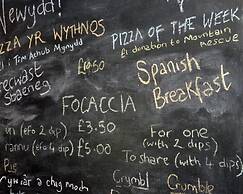 Newydd!
PIZZA YR WYTHNOS
i: Tim Achub Mynydd
PIZZA OF THE WEEK
£1 donation to Mountain
RESCUE
£9.50
Spanish
Breakfast
FOCACCIA
un (efo 2 dips) £3.50
rannu (efo 4 dips) £5.00
For one
(with 2 dips)
To share (with 4 dips)
Pie
Crymbl
Crumble